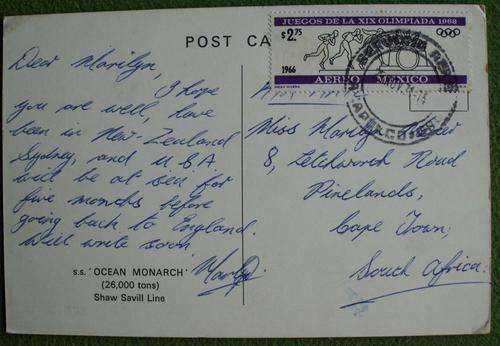 POST CA
JUEGOS DE LA XIX OLIMPIADA 1968
$2.75
1966
AEREO MEXICO
Dear Marilyn,
I hope
you are well, have
been in New-Zealand
Sydney, and U S A
will be at sea for
five months before
going back to England.
Will write soon
s.s. 'OCEAN MONARCH'
(26,000 tons)
Shaw Savill Line
Miss Marilyn
8, Letchworth Road
Pinelands,
Cape Town,
South Africa.